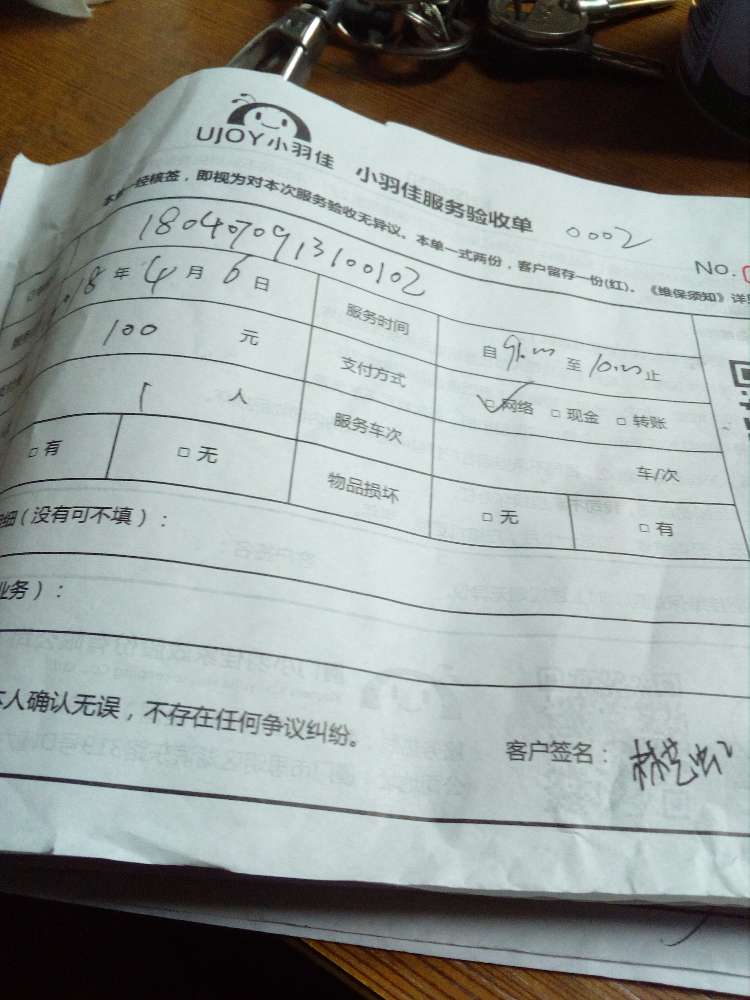 UJOY小羽佳 小羽佳服务验收单 0002
NO.
经核签，即视为对本次服务验收无异议。本单一式两份，客户留存一份(红)。《维保须知》详
1804070913100102
18年4月6日 服务时间 自 至 止
100 元 支付方式 □网络 □现金 □转账
1 人 服务车次 车/次
□有 □无 物品损坏 □无 □有
细(没有可不填)：
业务)：
本人确认无误，不存在任何争议纠纷。
客户签名：